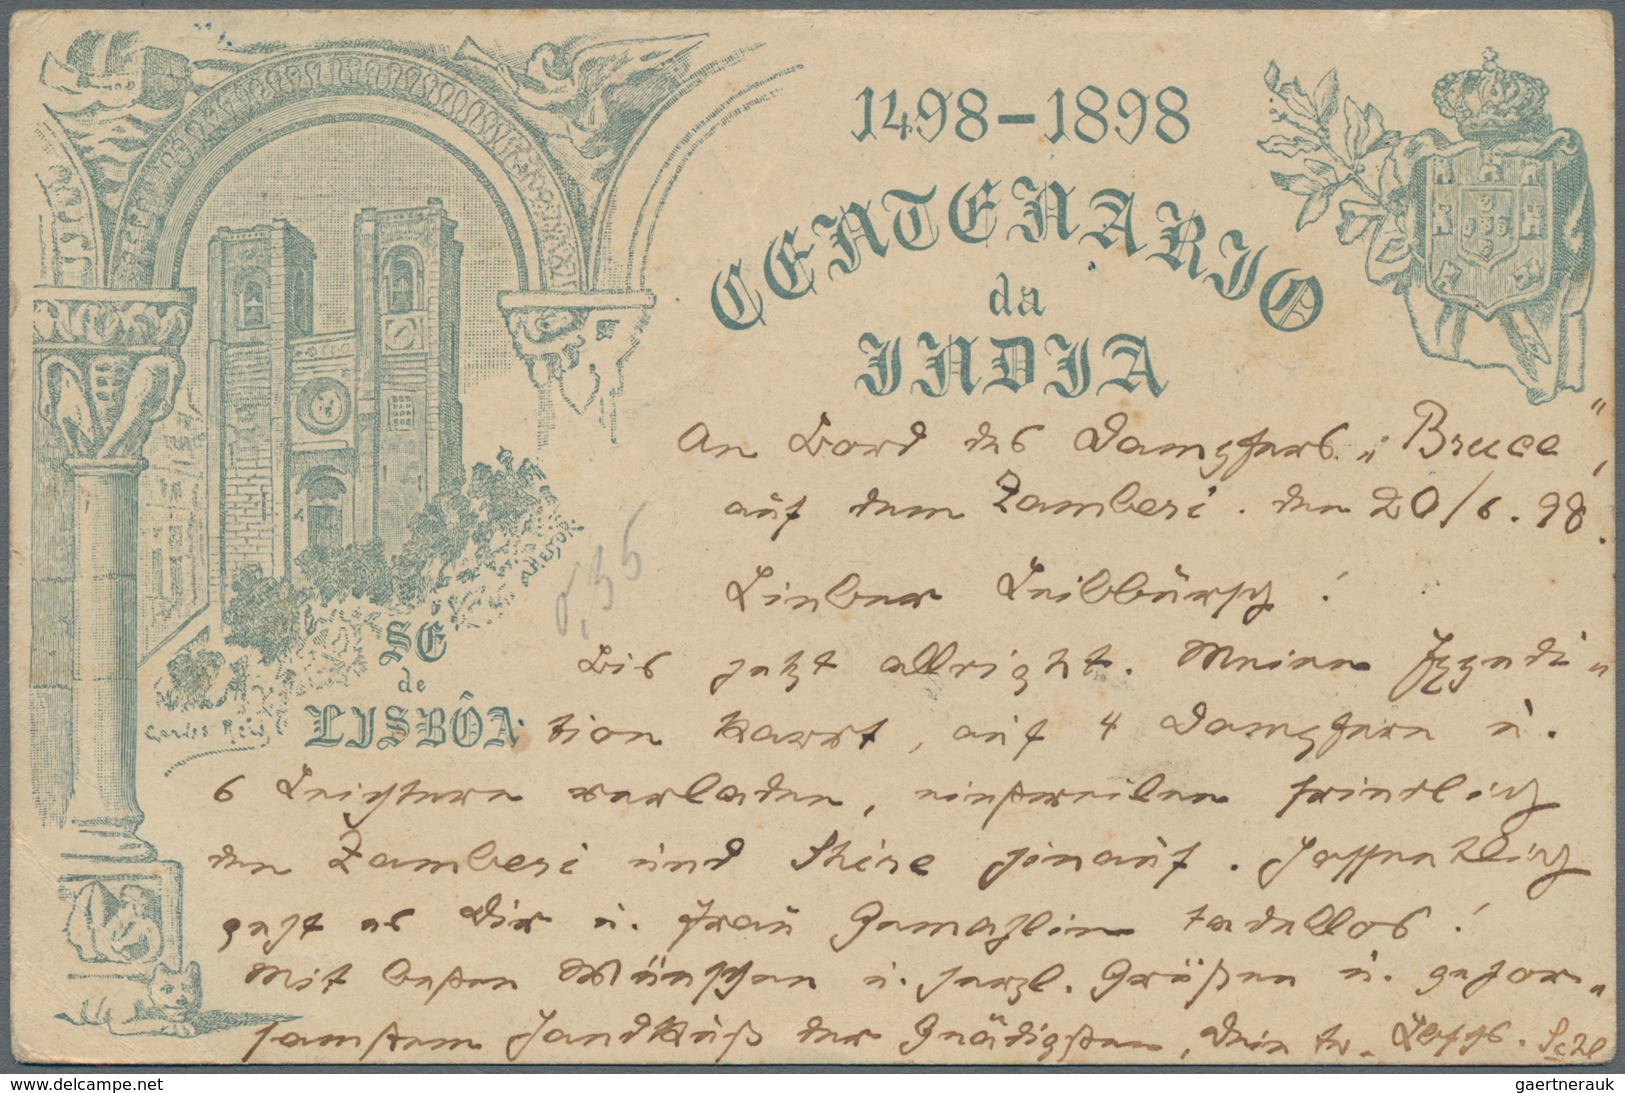 1498-1898
CENTENARIO
da
INDIA
SÉ
de
LISBÔA
Carlos Reis
An Bord des Dampfers „Bruce”,
auf dem Zambesi. den 20/6.98.
Lieber Leibbursch!
Bis jetzt allright. Meine Expedi-
tion karrt, auf 4 Dampfern u.
6 Leichtern verladen, einstweilen friedlich
den Zambesi und Shire hinauf. Hoffentlich
geht es Dir u. Frau Gemahlin tadellos!
Mit besten Wünschen u. herzl. Grüßen u. gehor-
samstem Handkuß der Gnädigsten, Dein tr.
0,35
gaertnerauk